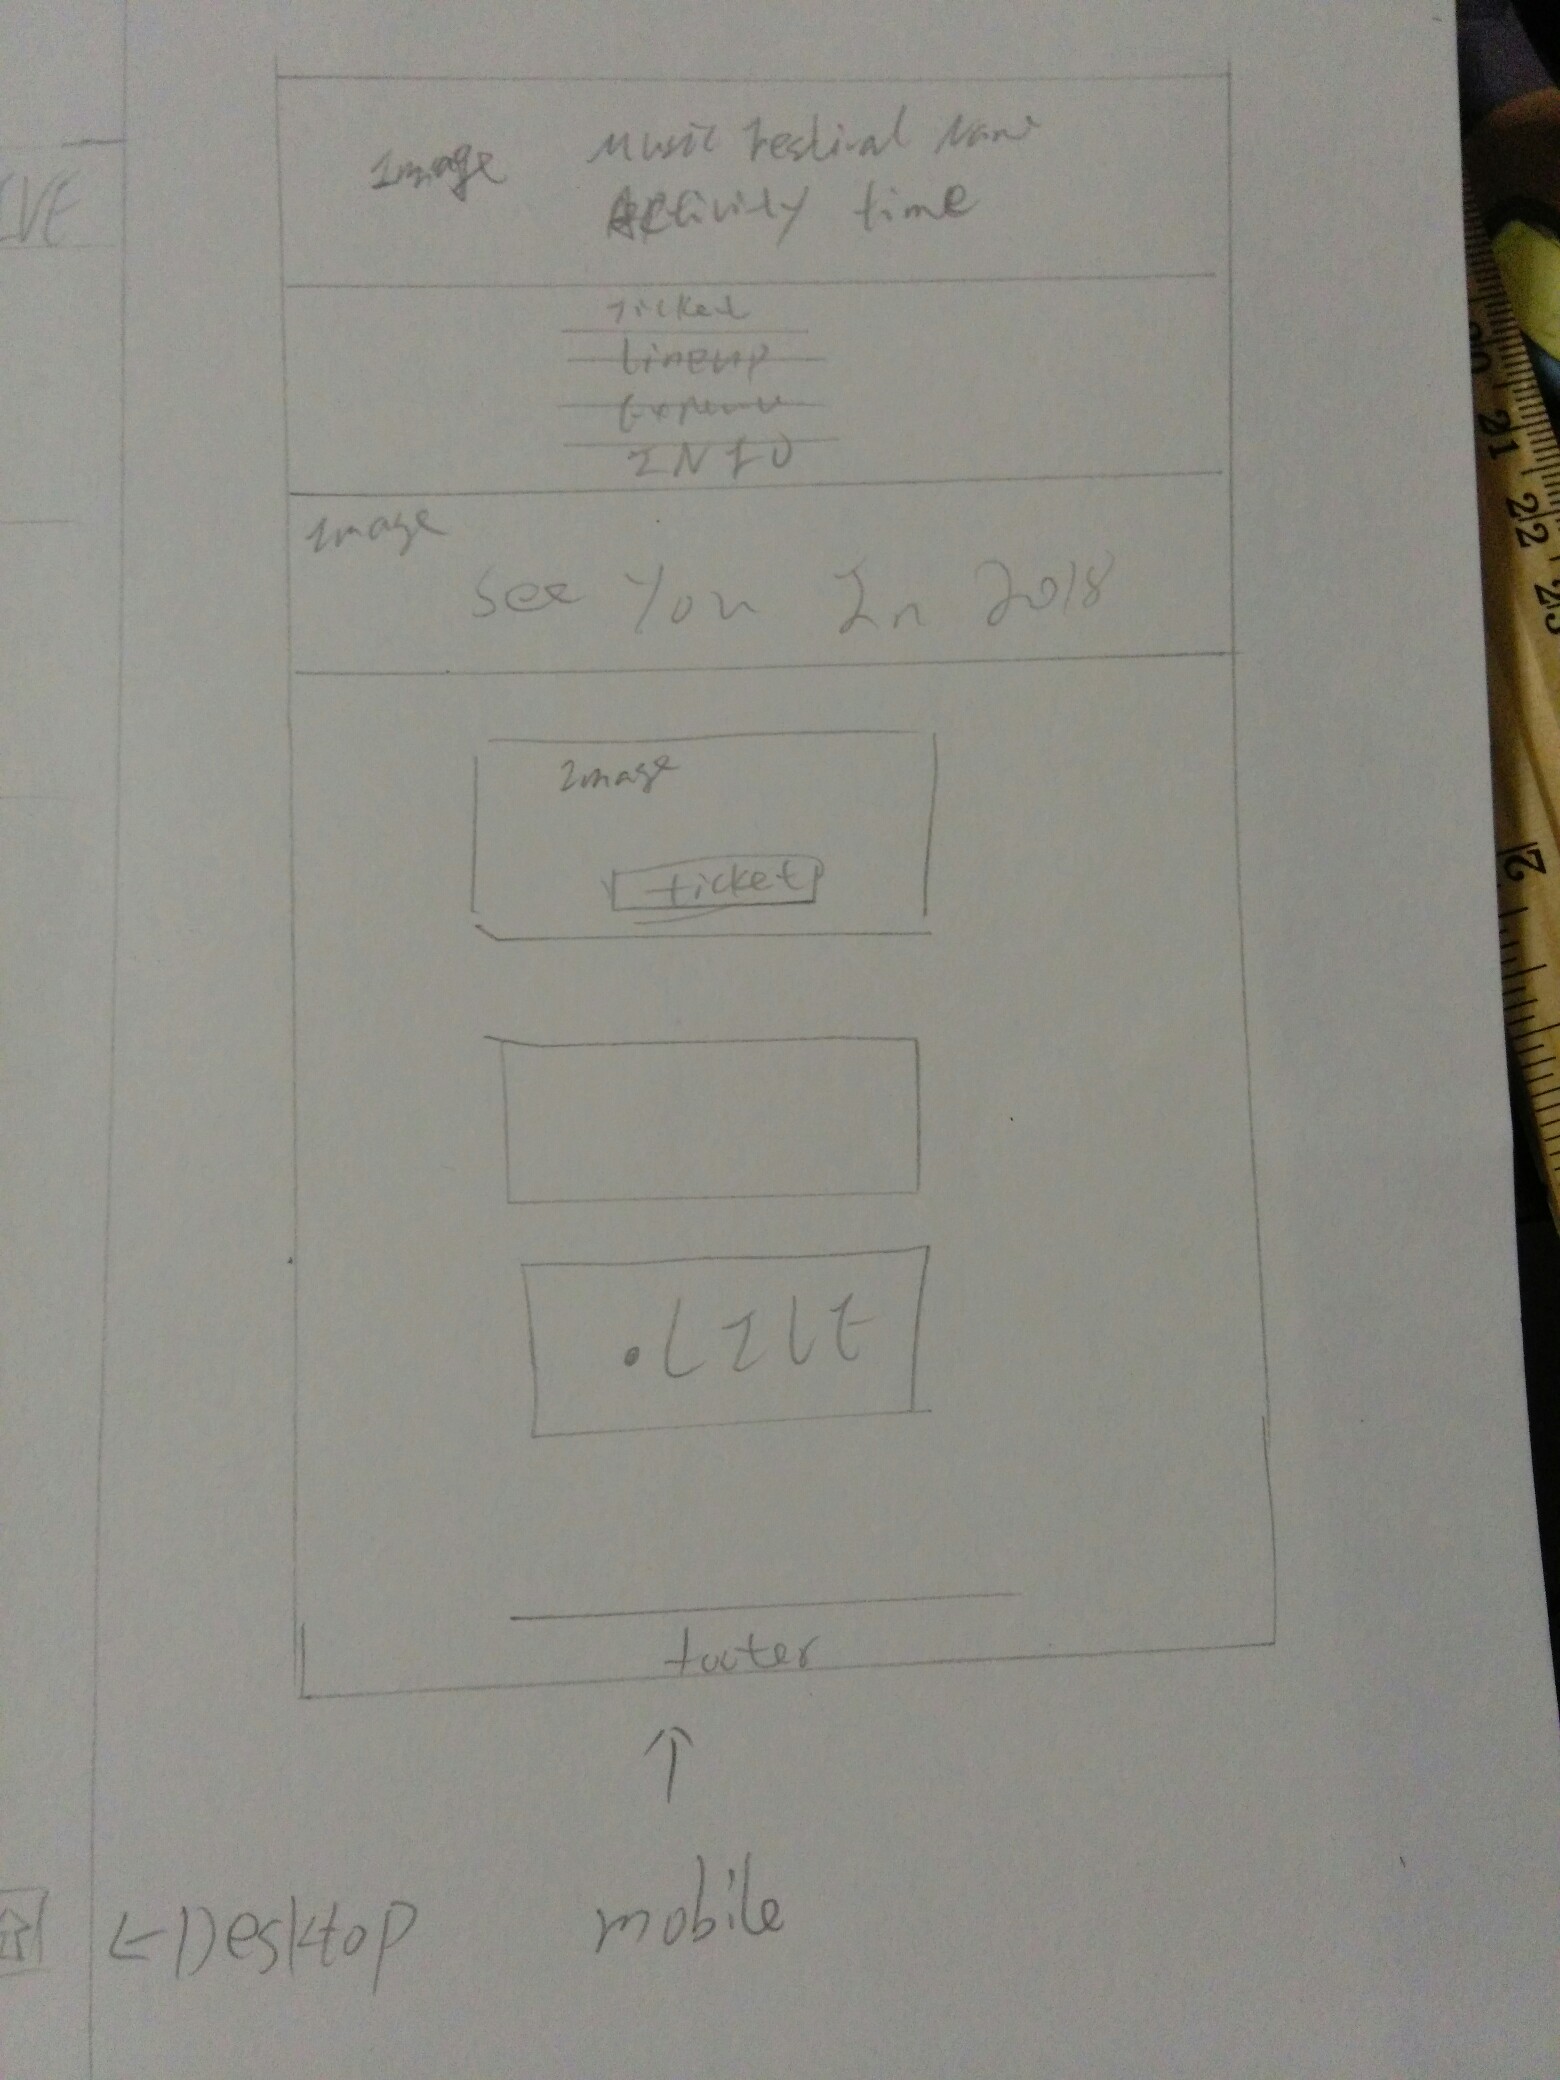 Image
Music Festival Name
Activity time
Ticket
Lineup
INFO
Image
See You In 2018
Image
ticket
.LIVE
footer
↑
mobile
←Desktop
IVE
20
21
22
23
2